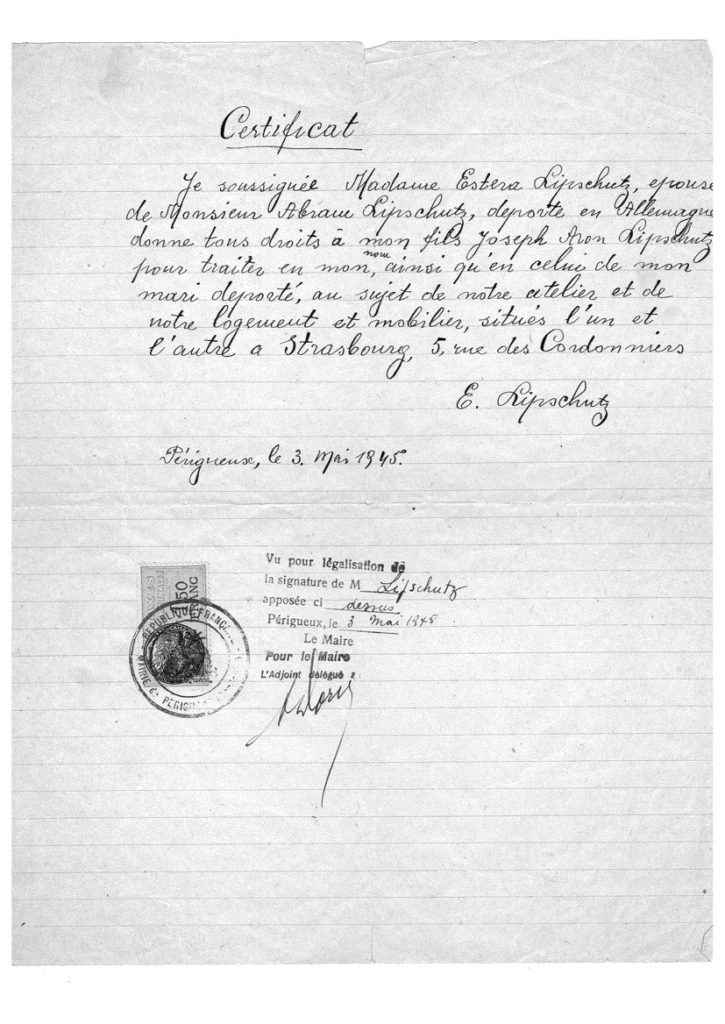 Certificat
Je soussignée Madame Estera Lipschutz, epouse
de Monsieur Abram Lipschutz, deporte en Allemagne
donne tous droits à mon fils Joseph Aron Lipschutz
pour traiter en mon nom, ainsi qu'en celui de mon
mari deporté, au sujet de notre atelier et de
notre logement et mobilier, situés l'un et
l'autre a Strasbourg, 5, rue des Cordonniers
E. Lipschutz
Périgueux, le 3. Mai 1945.
Vu pour légalisation de
la signature de M Lipschutz
apposée ci dessus
Périgueux, le 3 Mai 1945
Le Maire
Pour le Maire
L'Adjoint délégué :
50
FRANC
REPUBLIQUE FRANÇAISE
MAIRIE DE PERIGUEUX